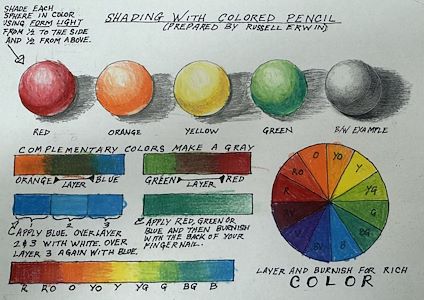 SHADE EACH
SPHERE IN COLOR
USING FORM LIGHT
FROM ½ TO THE SIDE
AND ½ FROM ABOVE.
SHADING WITH COLORED PENCIL
(PREPARED BY RUSSELL ERWIN)
RED ORANGE YELLOW GREEN B/W EXAMPLE
COMPLEMENTARY COLORS MAKE A GRAY
ORANGE LAYER BLUE
GREEN LAYER RED
1 2 3
APPLY BLUE. OVERLAYER
2 & 3 WITH WHITE. OVER
LAYER 3 AGAIN WITH BLUE.
APPLY RED, GREEN OR
BLUE AND THEN BURNISH
WITH THE BACK OF YOUR
FINGERNAIL.
R RO O YO Y YG G BG B
O YO Y YG G BG B BV V RV R RO
LAYER AND BURNISH FOR RICH
COLOR